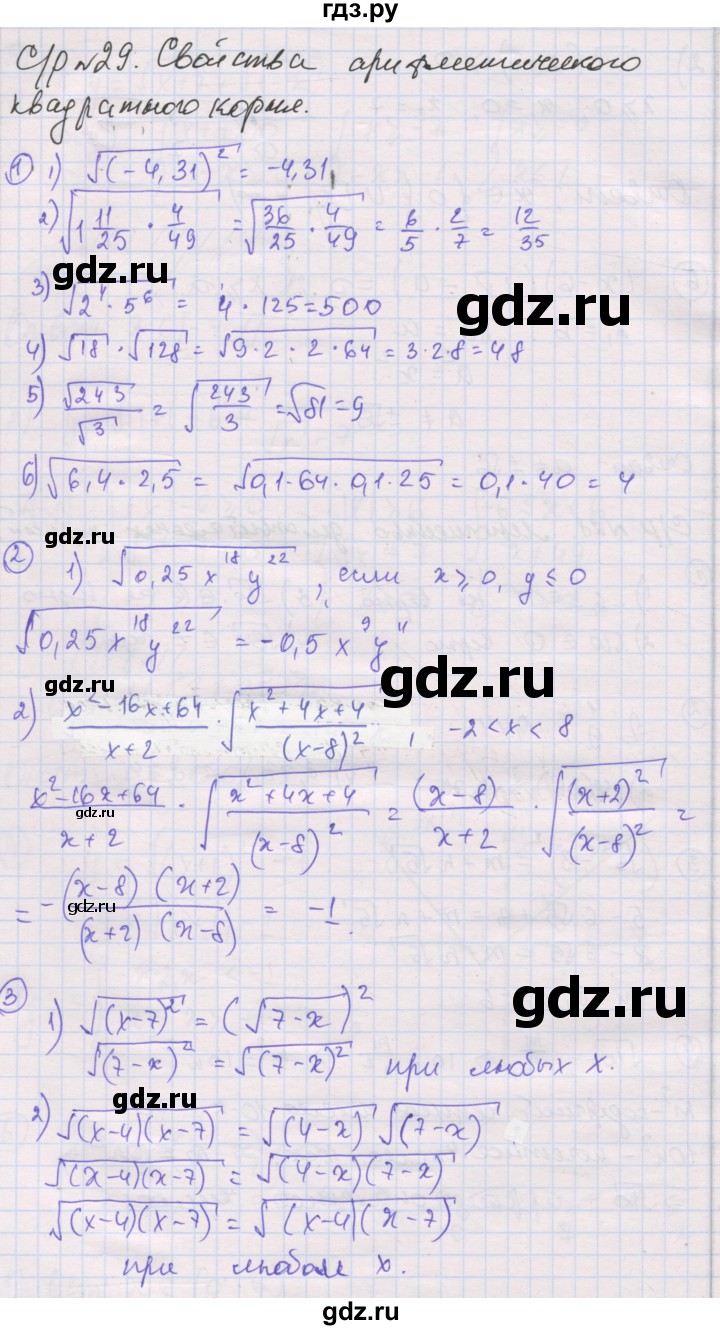 гдз.ру
С/р №29. Свойства арифметического
квадратного корня.
① 1) √(-4,31)² = -4,31
2) √(1 11/25 · 4/49) = √(36/25 · 4/49) = 6/5 · 2/7 = 12/35
gdz.ru
gdz.ru
3) √(2⁴ · 5⁶) = 4 · 125 = 500
4) √18 · √128 = √(9 · 2 · 2 · 64) = 3 · 2 · 8 = 48
5) √243/√3 = √(243/3) = √81 = 9
6) √(6,4 · 2,5) = √(0,1 · 64 · 0,1 · 25) = 0,1 · 40 = 4
gdz.ru
② 1) √(0,25x¹⁸y²²), если x ≥ 0, y ≤ 0
√(0,25x¹⁸y²²) = -0,5x⁹y¹¹
gdz.ru
2) (x² - 16x + 64)/(x + 2) · √((x² + 4x + 4)/(x - 8)²), -2 < x < 8
(x² - 16x + 64)/(x + 2) · √((x² + 4x + 4)/(x - 8)²) = (x - 8)/(x + 2) · √((x + 2)²/(x - 8)²) =
gdz.ru
= -((x - 8)(x + 2))/((x + 2)(x - 8)) = -1.
gdz.ru
gdz.ru
③ 1) √(x - 7)² = (√(7 - x))²
√(7 - x)² = √(7 - x)² при любых x.
gdz.ru
2) √((x - 4)(x - 7)) = √(4 - x) √(7 - x)
√((x - 4)(x - 7)) = √((4 - x)(7 - x))
√((x - 4)(x - 7)) = √((x - 4)(x - 7))
при любом x.
gdz.ru
гдз.ру